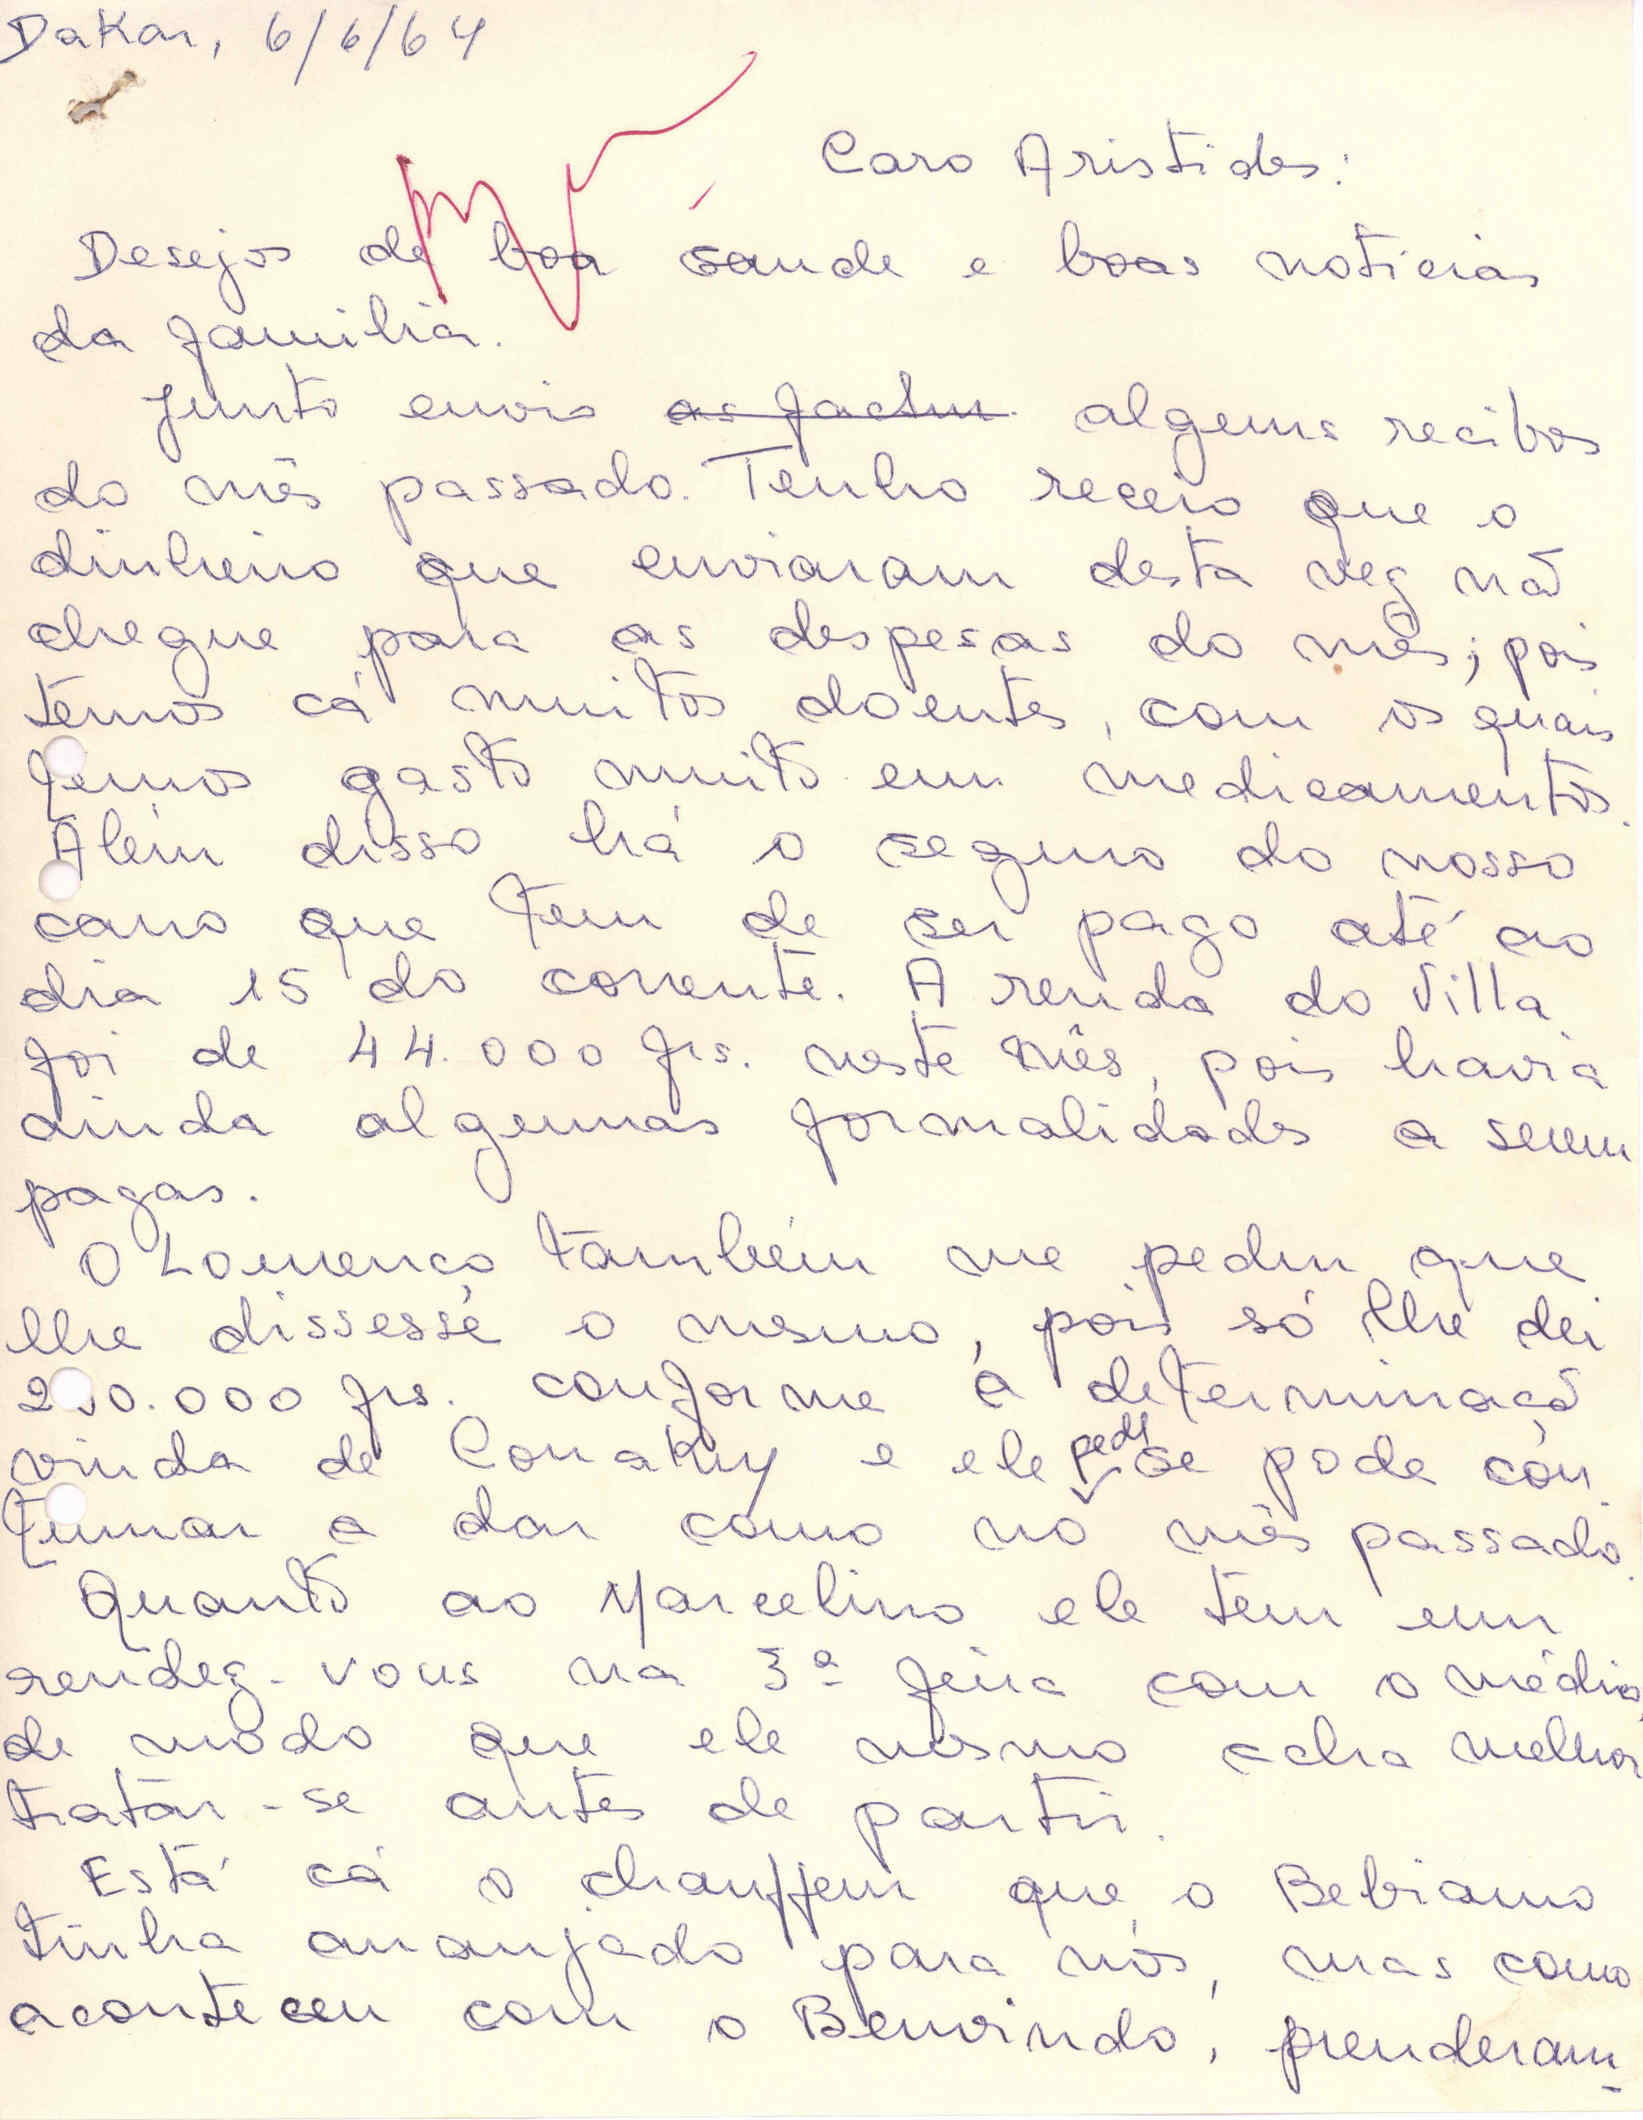 Dakar, 6/6/64
Caro Aristides:
Desejos de boa saude e boas noticias
da familia.
Junto envio as factur. alguns recibos
do mês passado. Tenho receio que o
dinheiro que enviaram desta vez não
chegue para as despesas do mês; pois
temos cá muitos doentes, com os quais
temos gasto muito em medicamentos.
Além disso há o seguro do nosso
carro que tem de ser pago até ao
dia 15 do corrente. A renda do Villa
foi de 44.000 frs. neste mês, pois havia
ainda algumas formalidades a serem
pagas.
O Lourenço também me pediu que
lhe dissesse o mesmo, pois só lhe dei
000 frs. conforme a determinação
vinda de Conakry e ele pede se pode con-
tinuar a dar como no mês passado.
Quanto ao Marcelino ele tem um
rendez-vous na 3ª feira com o médico,
de modo que ele mesmo acha melhor
tratar-se antes de partir.
Está cá o chauffeur que o Bebiano
tinha arranjado para nós, mas como
aconteceu com o Benvindo, prenderam-